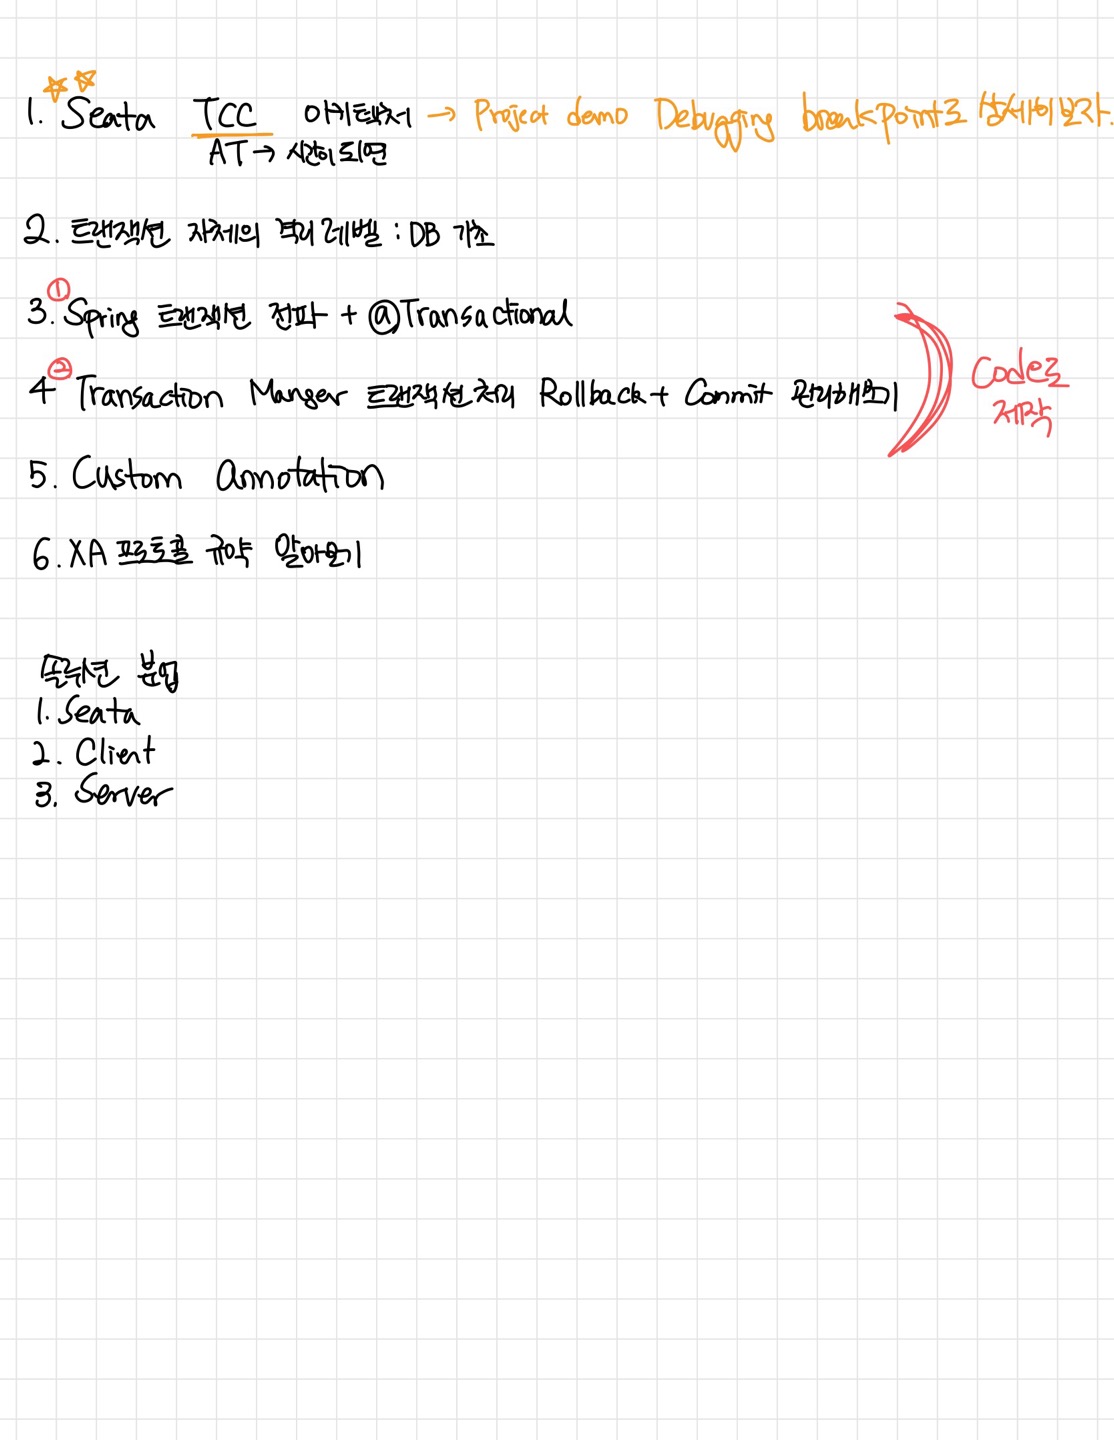 1. Seata TCC 아키텍처 → Project demo Debugging breakpoint로 상세히보자.
AT → 시간이되면
2. 트랜잭션 자체의 격리레벨 : DB 기초
①
3. Spring 트랜잭션 전파 + @Transactional
②
4 Transaction Manger 트랜잭션처리 Rollback + Commit 관리해보기
Code로
제작
5. Custom annotation
6. XA 프로토콜 규약 알아보기
솔루션 분업
1. Seata
2. Client
3. Server